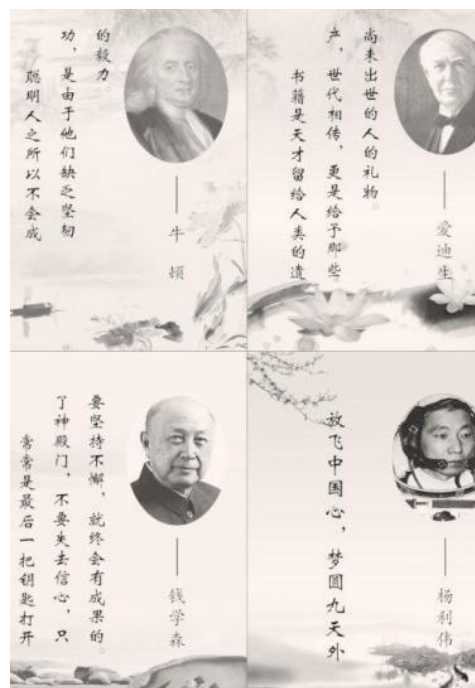 聪明人之所以不会成
功，是由于他们缺乏坚韧
的毅力。
——牛顿
书籍是天才留给人类的遗
产，世代相传，更是给予那些
尚未出世的人的礼物。
——爱迪生
常常是最后一把钥匙打开
了神殿门，不要失去信心，只
要坚持不懈，就终会有成果的。
——钱学森
放飞中国心，梦圆九天外
——杨利伟